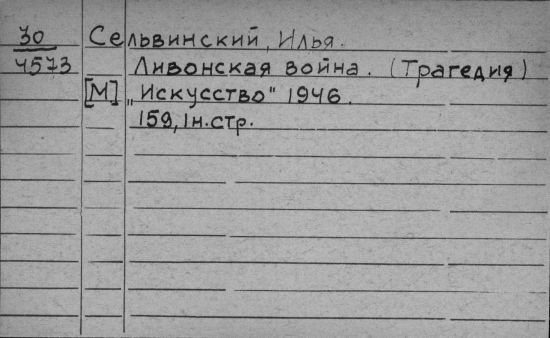 30 Сельвинский, Илья.
4573 Ливонская война. (Трагедия)
[М] „Искусство" 1946.
159, 1н.стр.